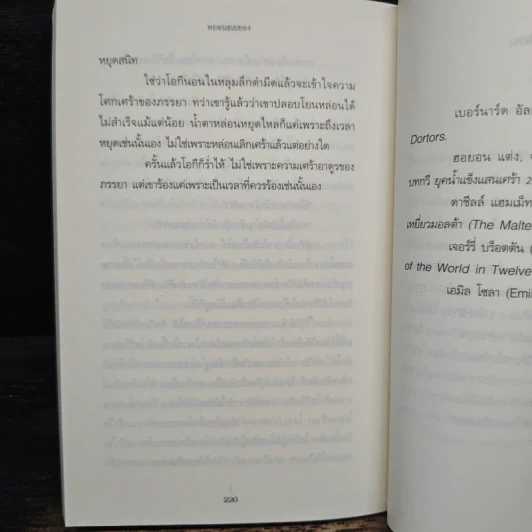 หยุดสนิท
ใช่ว่าโอกีนอนในหลุมลึกดำมืดแล้วจะเข้าใจความ
โศกเศร้าของภรรยา ทว่าเขารู้แล้วว่าเขาปลอบโยนหล่อนได้
ไม่สำเร็จแม้แต่น้อย น้ำตาหล่อนหยุดไหลก็แค่เพราะถึงเวลา
หยุดเช่นนั้นเอง ไม่ใช่เพราะหล่อนเลิกเศร้าแล้วแต่อย่างใด
ครั้นแล้วโอกีก็ร่ำไห้ ไม่ใช่เพราะความเศร้าอาดูรของ
ภรรยา แต่เขาร้องแค่เพราะเป็นเวลาที่ควรร้องเช่นนั้นเอง
220
เบอร์นาร์ด
Dortors.
ฮอยอน แต่ง.
บทกวี ยุคน้ำแข็งแสนเศร้า 2
ดาชีลล์ แฮมเม็ท
เหยี่ยวมอลต้า (The Malte
เจอร์รี่ บร็อตตัน (
of the World in Twelve
เอมิล โซลา (Emi